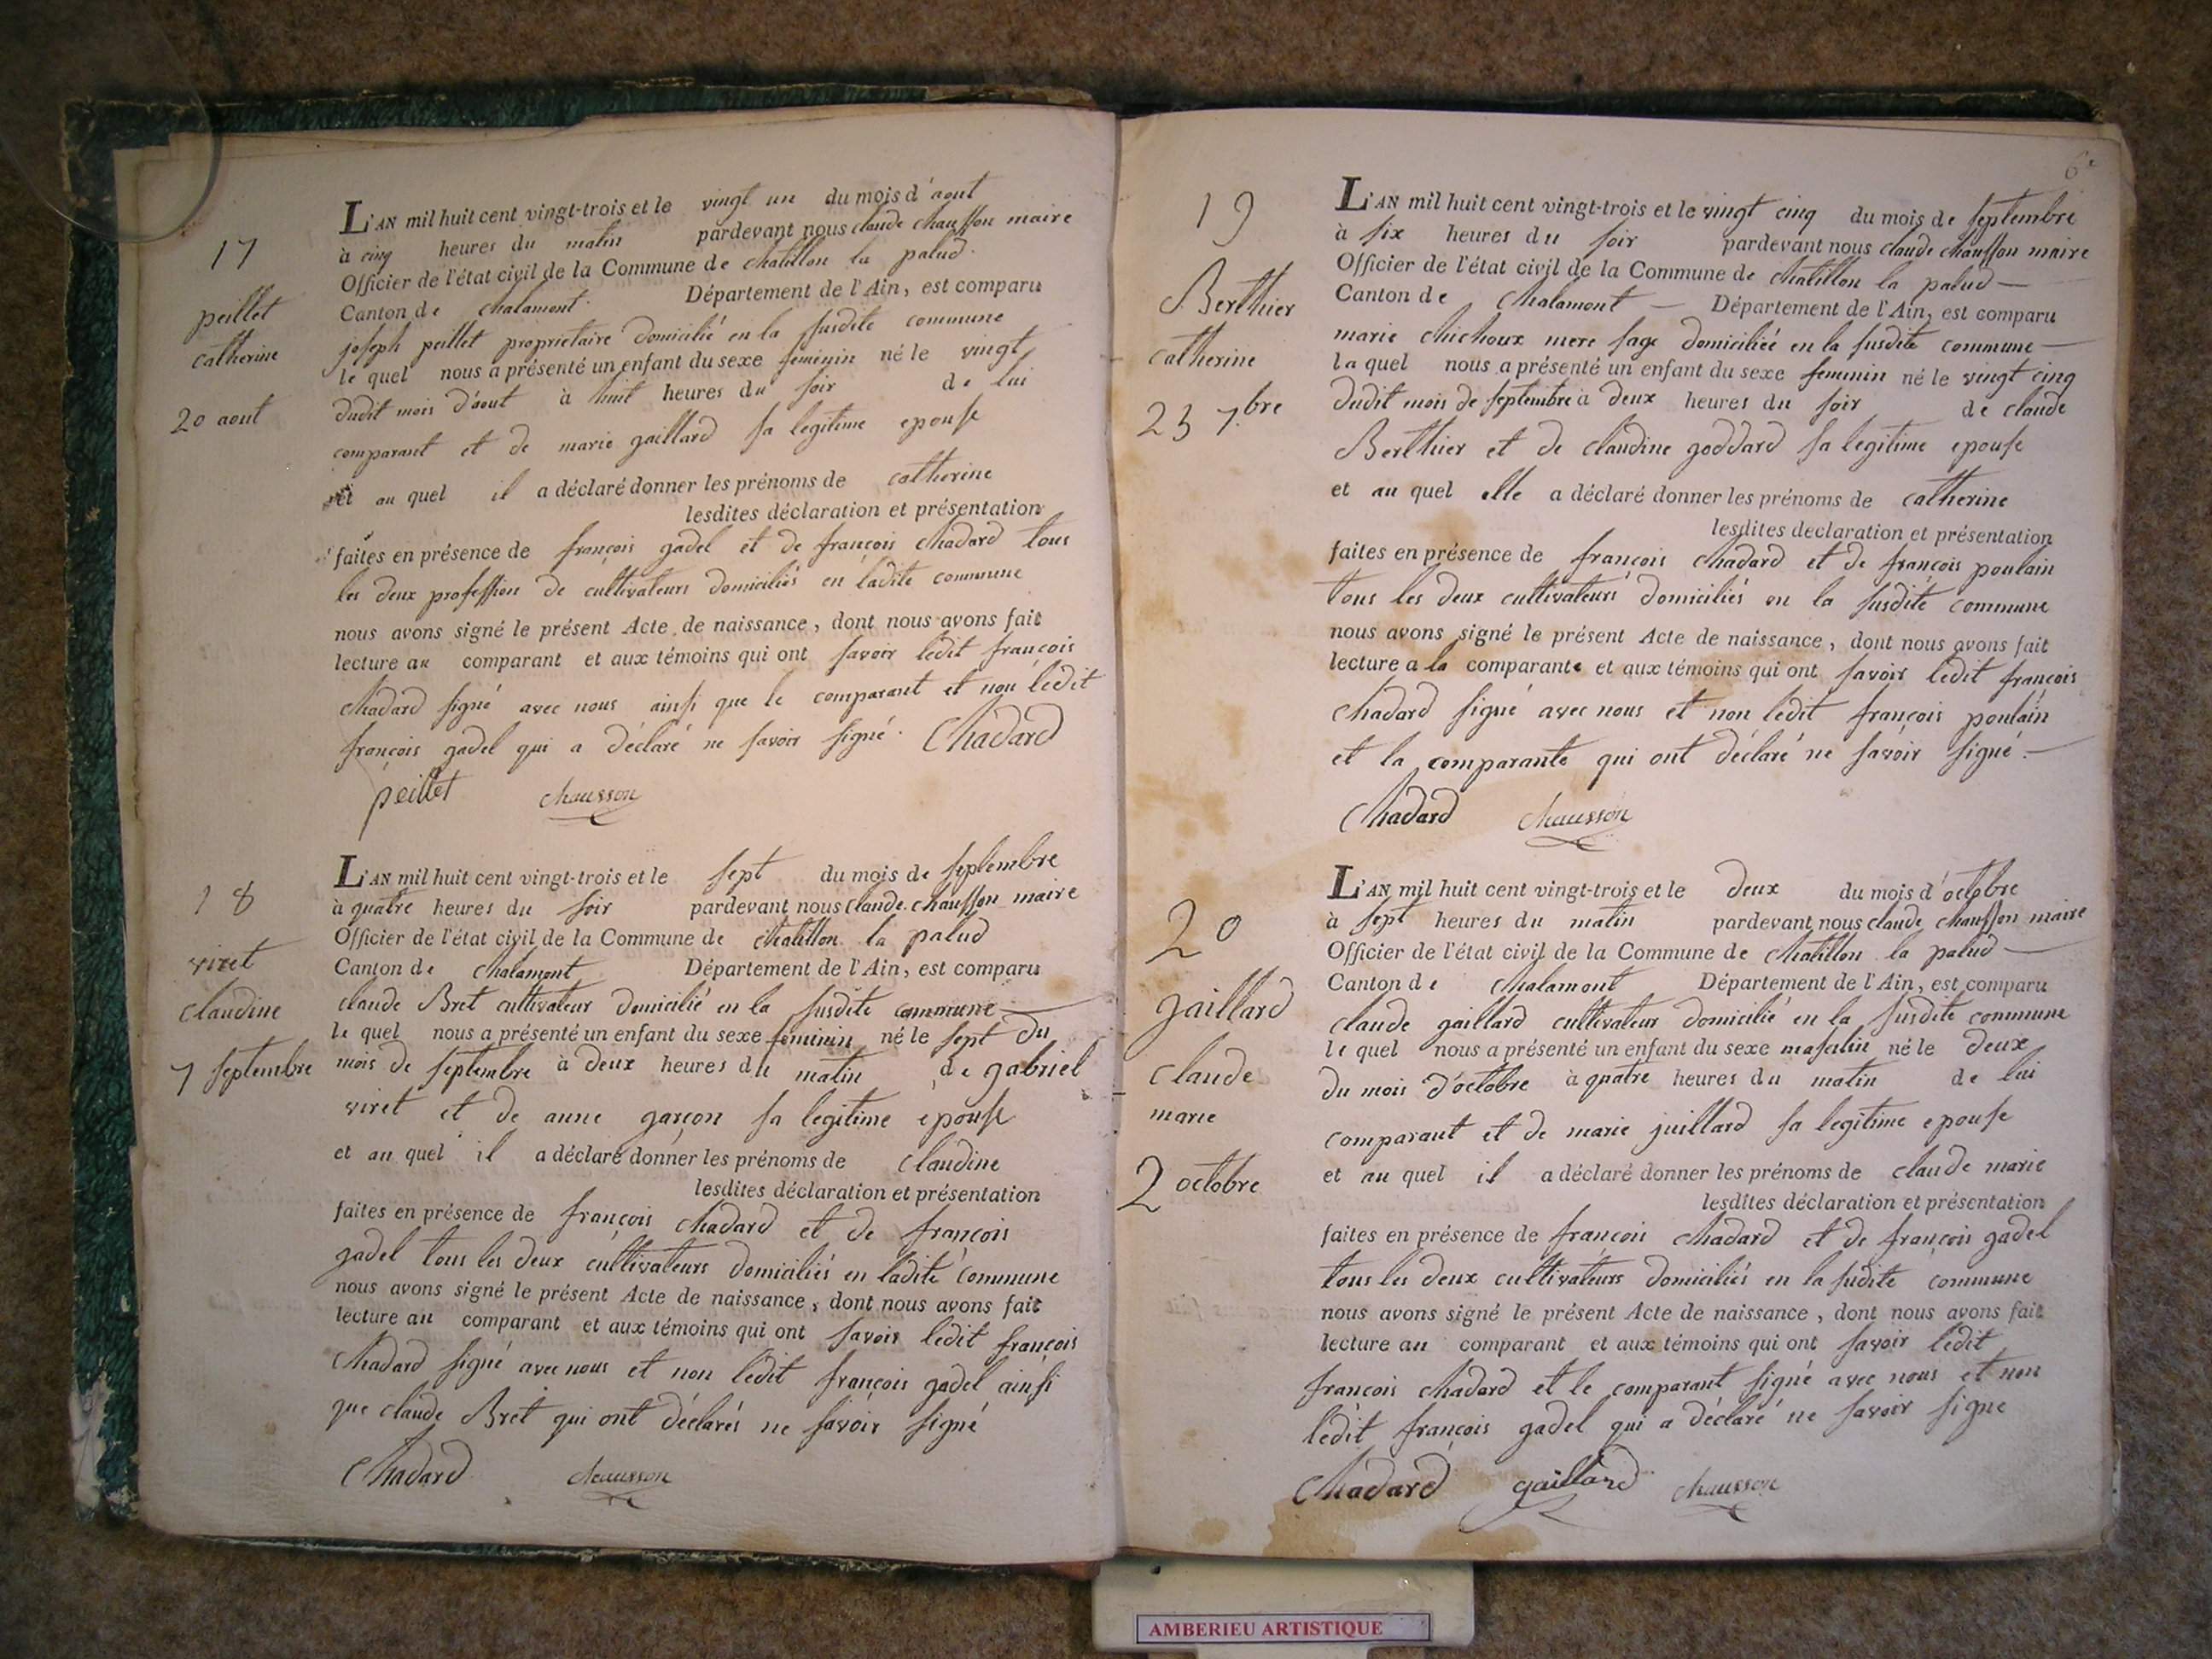 17
peillet
catherine
20 aout
L'AN mil huit cent vingt-trois et le vingt un du mois d'aout
à cinq heures du matin pardevant nous claude chausson maire
Officier de l'état civil de la Commune de chatillon la palud.
Canton de chalamont. Département de l'Ain, est comparu
joseph peillet proprietaire domicilié en la susdite commune
le quel nous a présenté un enfant du sexe feminin né le vingt
dudit mois d'aout à huit heures du soir de lui
comparant et de marie gaillard sa legitime epouse
et au quel il a déclaré donner les prénoms de catherine
lesdites déclaration et présentation
faites en présence de françois gadel et de françois chadard tous
les deux profession de cultivateurs domiciliés en ladite commune
nous avons signé le présent Acte de naissance, dont nous avons fait
lecture au comparant et aux témoins qui ont savoir ledit françois
chadard signé avec nous ainsi que le comparant et non ledit
françois gadel qui a déclaré ne savoir signé. Chadard
peillet chausson
18
viret
claudine
7 septembre
L'AN mil huit cent vingt-trois et le sept du mois de septembre
à quatre heures du soir pardevant nous claude chausson maire
Officier de l'état civil de la Commune de chatillon la palud
Canton de chalamont Département de l'Ain, est comparu
claude Bret cultivateur domicilié en la susdite commune
le quel nous a présenté un enfant du sexe feminin né le sept du
mois de septembre à deux heures du matin de gabriel
viret et de anne garçon sa legitime epouse
et au quel il a déclaré donner les prénoms de claudine
lesdites déclaration et présentation
faites en présence de françois chadard et de françois
gadel tous les deux cultivateurs domiciliés en ladite commune
nous avons signé le présent Acte de naissance, dont nous avons fait
lecture au comparant et aux témoins qui ont savoir ledit françois
chadard signé avec nous et non ledit françois gadel ainsi
que claude Bret qui ont déclarés ne savoir signé
Chadard chausson
6e
19
Berthier
catherine
25 7.bre
L'AN mil huit cent vingt-trois et le vingt cinq du mois de septembre
à six heures du soir pardevant nous claude chausson maire
Officier de l'état civil de la Commune de chatillon la palud —
Canton de chalamont — Département de l'Ain, est comparu
marie chichoux mere sage domiciliée en la susdite commune —
la quel nous a présenté un enfant du sexe feminin né le vingt cinq
dudit mois de septembre à deux heures du soir de claude
Berthier et de claudine goddard sa legitime epouse
et au quel elle a déclaré donner les prénoms de catherine
lesdites declaration et présentation
faites en présence de françois chadard et de françois poulain
tous les deux cultivateurs domiciliés en la susdite commune
nous avons signé le présent Acte de naissance, dont nous avons fait
lecture a la comparante et aux témoins qui ont savoir ledit françois
chadard signé avec nous et non ledit françois poulain
et la comparante qui ont déclaré ne savoir signé. —
Chadard chausson
20
gaillard
claude
marie
2 octobre
L'AN mil huit cent vingt-trois et le deux du mois d'octobre
à sept heures du matin pardevant nous claude chausson maire
Officier de l'état civil de la Commune de chatillon la palud —
Canton de chalamont Département de l'Ain, est comparu
claude gaillard cultivateur domicilié en la susdite commune
le quel nous a présenté un enfant du sexe masculin né le deux
du mois d'octobre à quatre heures du matin de lui
comparant et de marie juillard sa legitime epouse
et au quel il a déclaré donner les prénoms de claude marie
lesdites déclaration et présentation
faites en présence de françois chadard et de françois gadel
tous les deux cultivateurs domiciliés en la sudite commune
nous avons signé le présent Acte de naissance, dont nous avons fait
lecture au comparant et aux témoins qui ont savoir ledit
françois chadard et le comparant signé avec nous et non
ledit françois gadel qui a déclaré ne savoir signe
Chadard gaillard chausson
AMBERIEU ARTISTIQUE